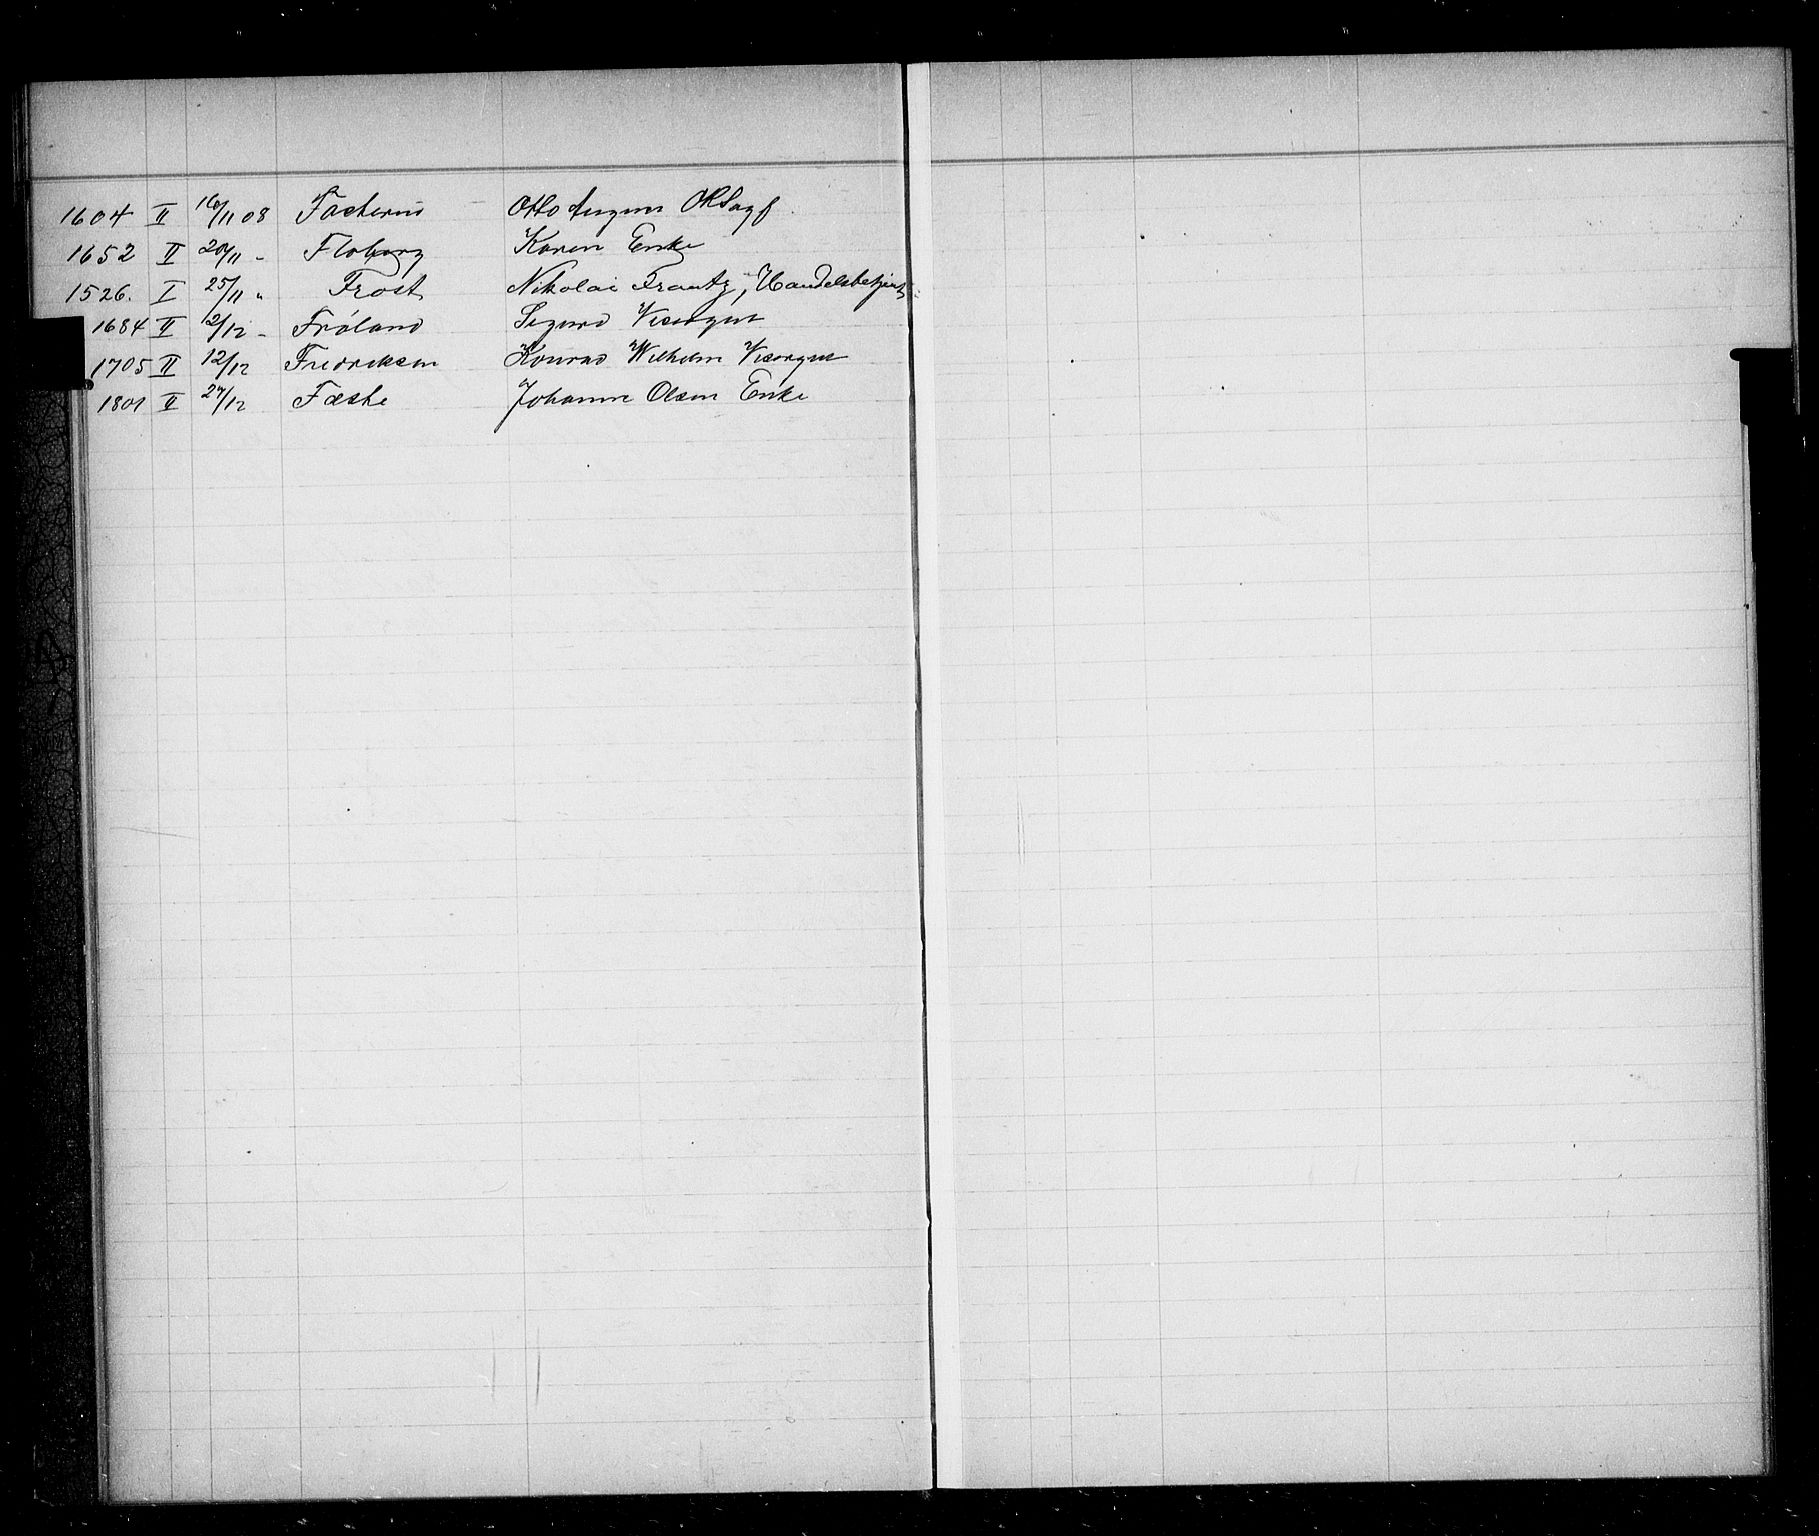 1604 II 16/11 08 Otto August ORSagf
1652 II 20/11 - Floborg Karen Enke
1526. I 25/11 " Frost Nikolai Frantz, Handelsbetjent
1684 II 2/12 - Frøland Sigurd Visergut
1705 II 12/12 Fredriksen Konrad Wilhelm Visergut
1801 II 24/12 Fæste Johanne Olsen Enke